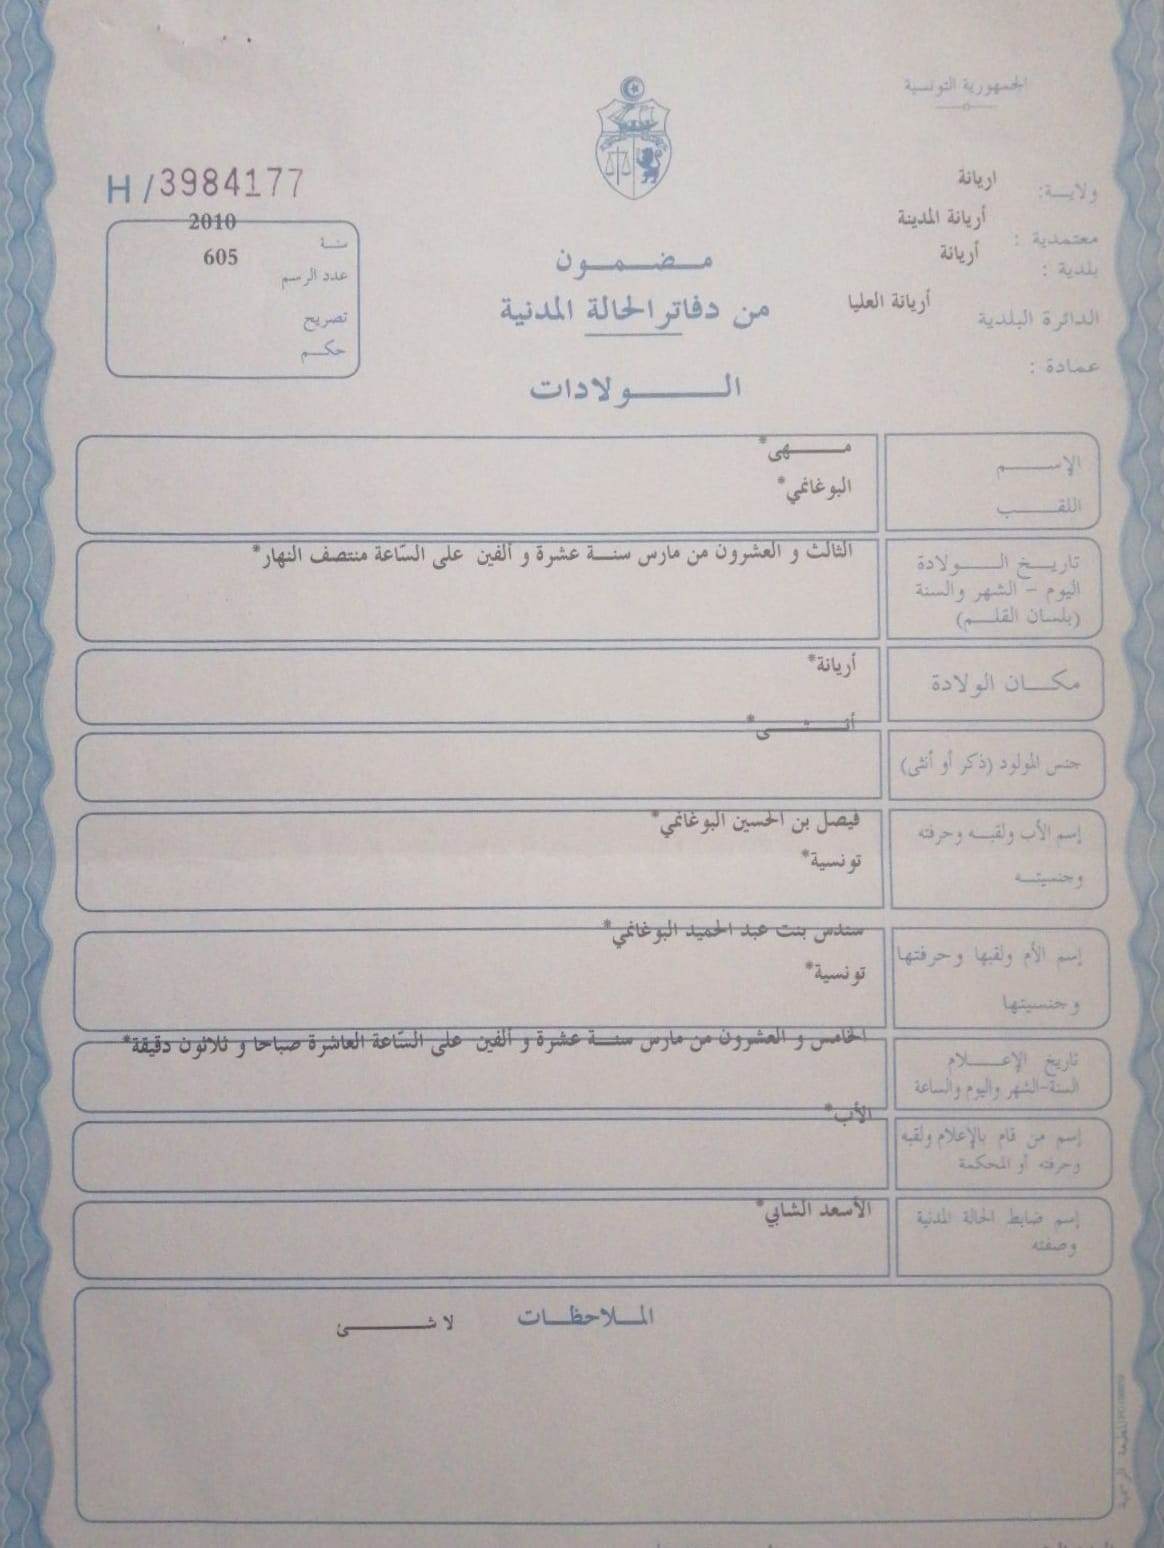 الجمهورية التونسية
H/3984177
ولاية: اريانة
معتمدية : أريانة المدينة
بلدية : أريانة
الدائرة البلدية أريانة العليا
عمادة :
سنة 2010
عدد الرسم 605
تصريح
حكم
مضمون
من دفاتر الحالة المدنية
الولادات
الإسم مهى*
اللقب البوغانمي*
تاريخ الولادة الثالث و العشرون من مارس سنة عشرة و ألفين على السّاعة منتصف النهار*
اليوم - الشهر والسنة
(بلسان القلم)
مكان الولادة أريانة*
جنس المولود (ذكر أو أنثى) أنثى*
إسم الأب ولقبه وحرفته فيصل بن الحسين البوغانمي*
وجنسيته تونسية*
إسم الأم ولقبها وحرفتها سندس بنت عبد الحميد البوغانمي*
وجنسيتها تونسية*
تاريخ الإعلام الخامس و العشرون من مارس سنة عشرة و ألفين على السّاعة العاشرة صباحا و ثلاثون دقيقة*
السنة-الشهر واليوم والساعة
إسم من قام بالإعلام ولقبه الأب*
وحرفته أو المحكمة
إسم ضابط الحالة المدنية الأسعد الشابي*
وصفته
الملاحظات لا شئ
المطبعة الرسمية